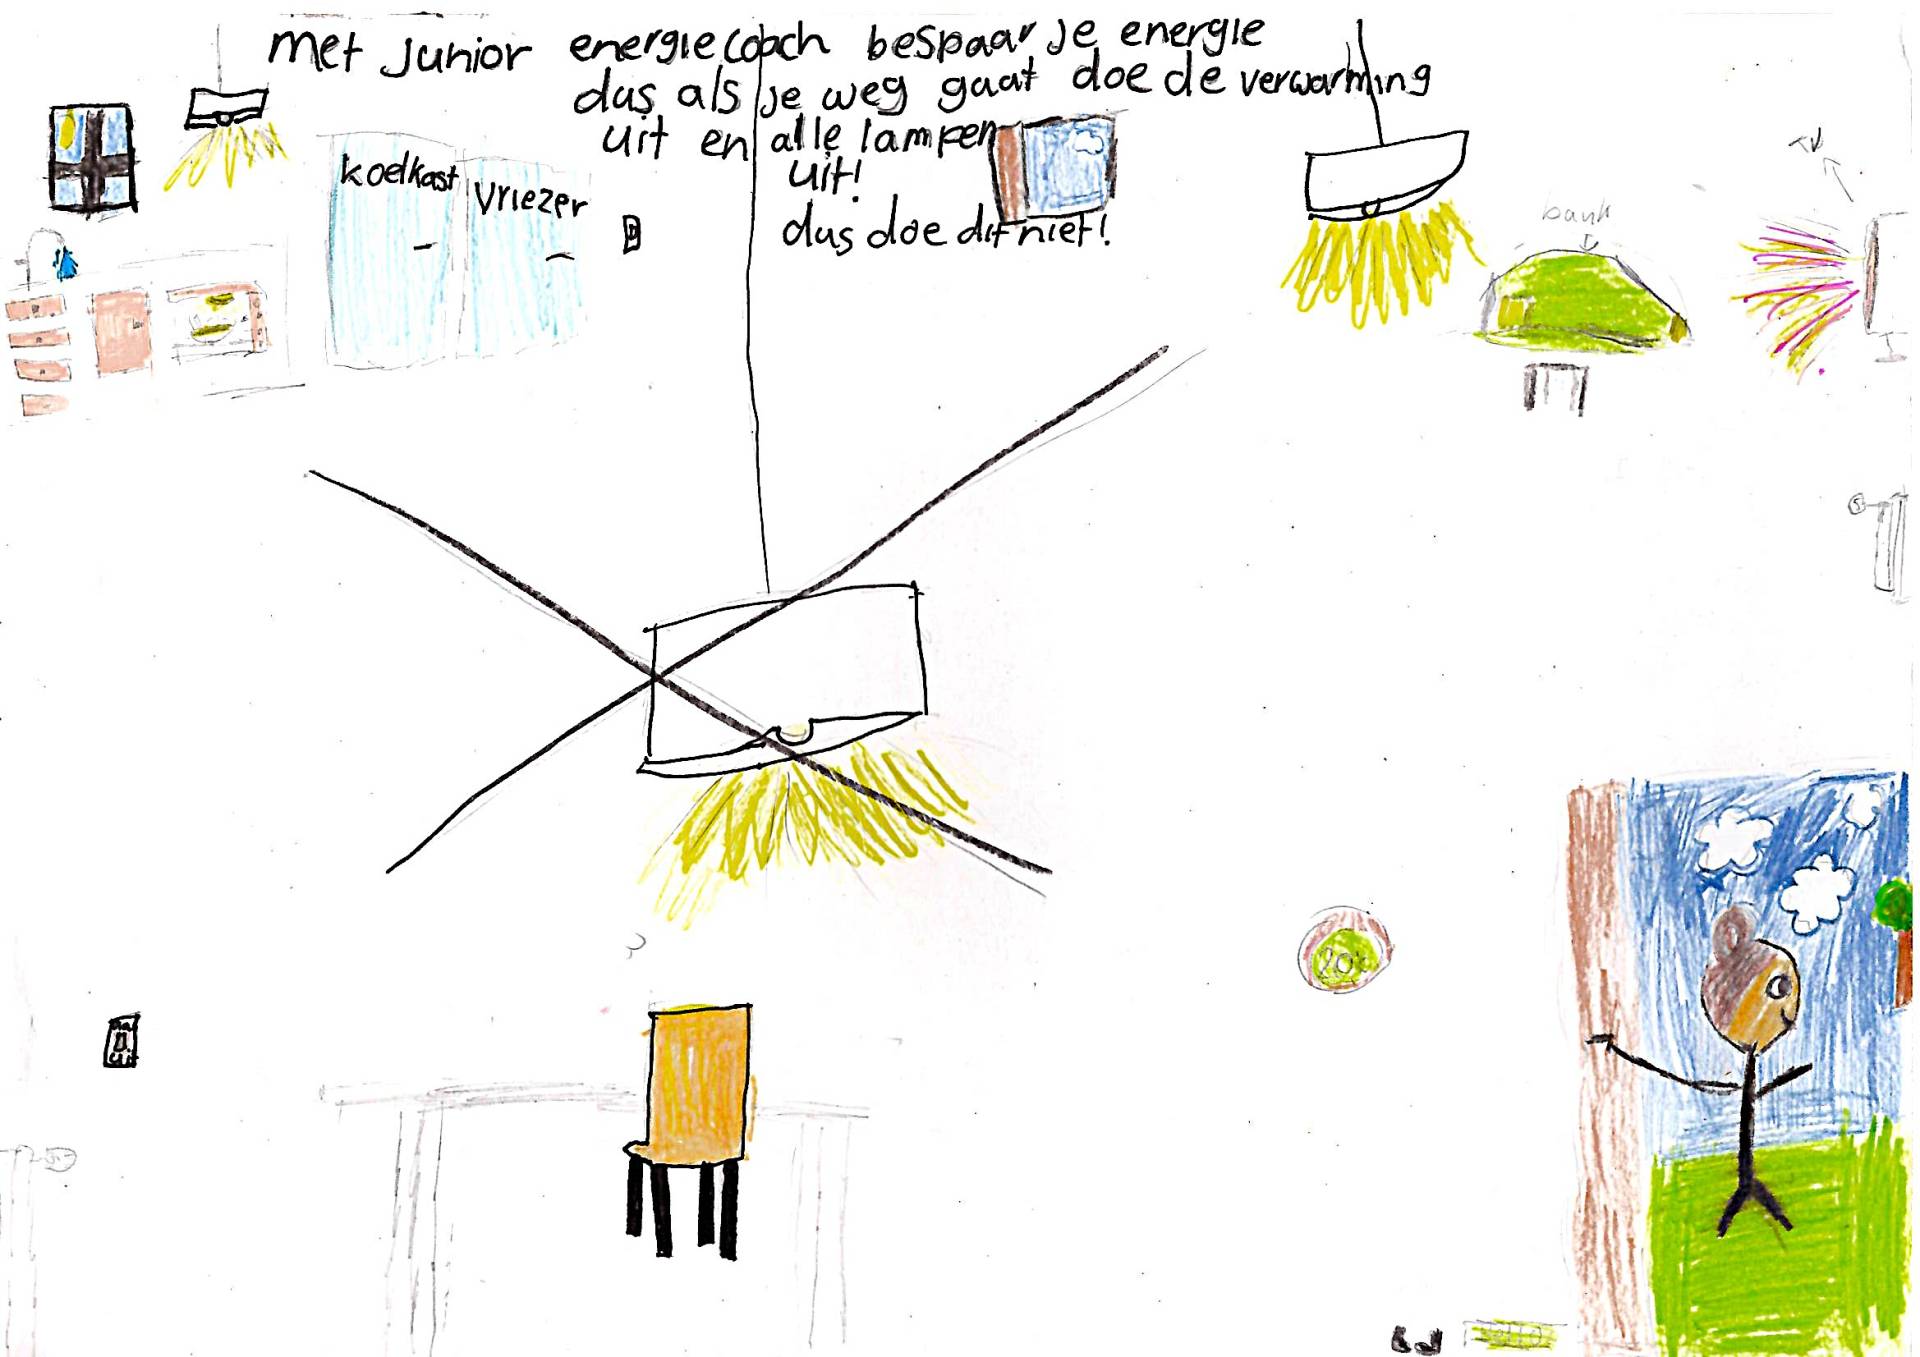 met junior energiecoach bespaar je energie
dus als je weg gaat doe de verwarming
uit en alle lampen
uit!
dus doe dit niet!
koelkast
vriezer
bank
TV
20°
aan
uit
hello